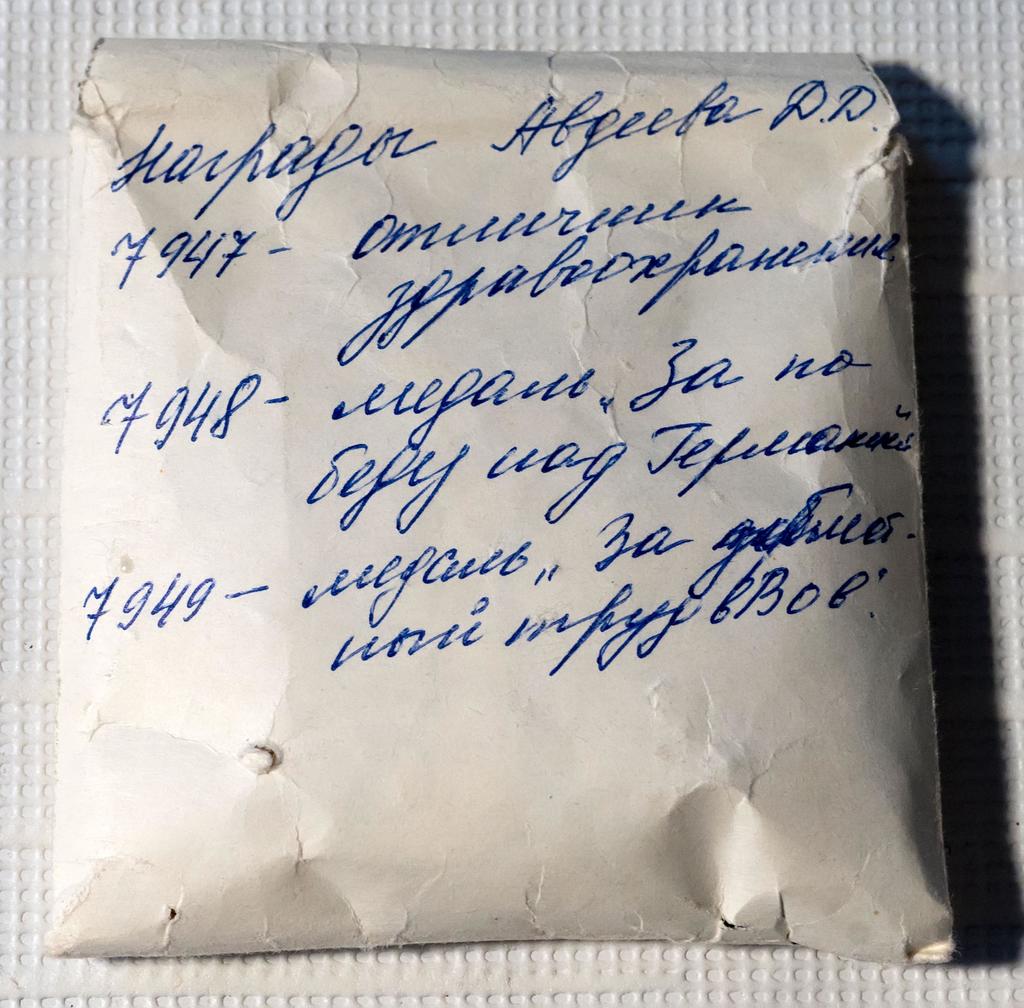 Награды Авдеева Д.Д.
7947 - отличник
здравоохранения
7948 - медаль „За по
беду над Германией"
7949 - медаль „За доблест-
ный труд в Вов"